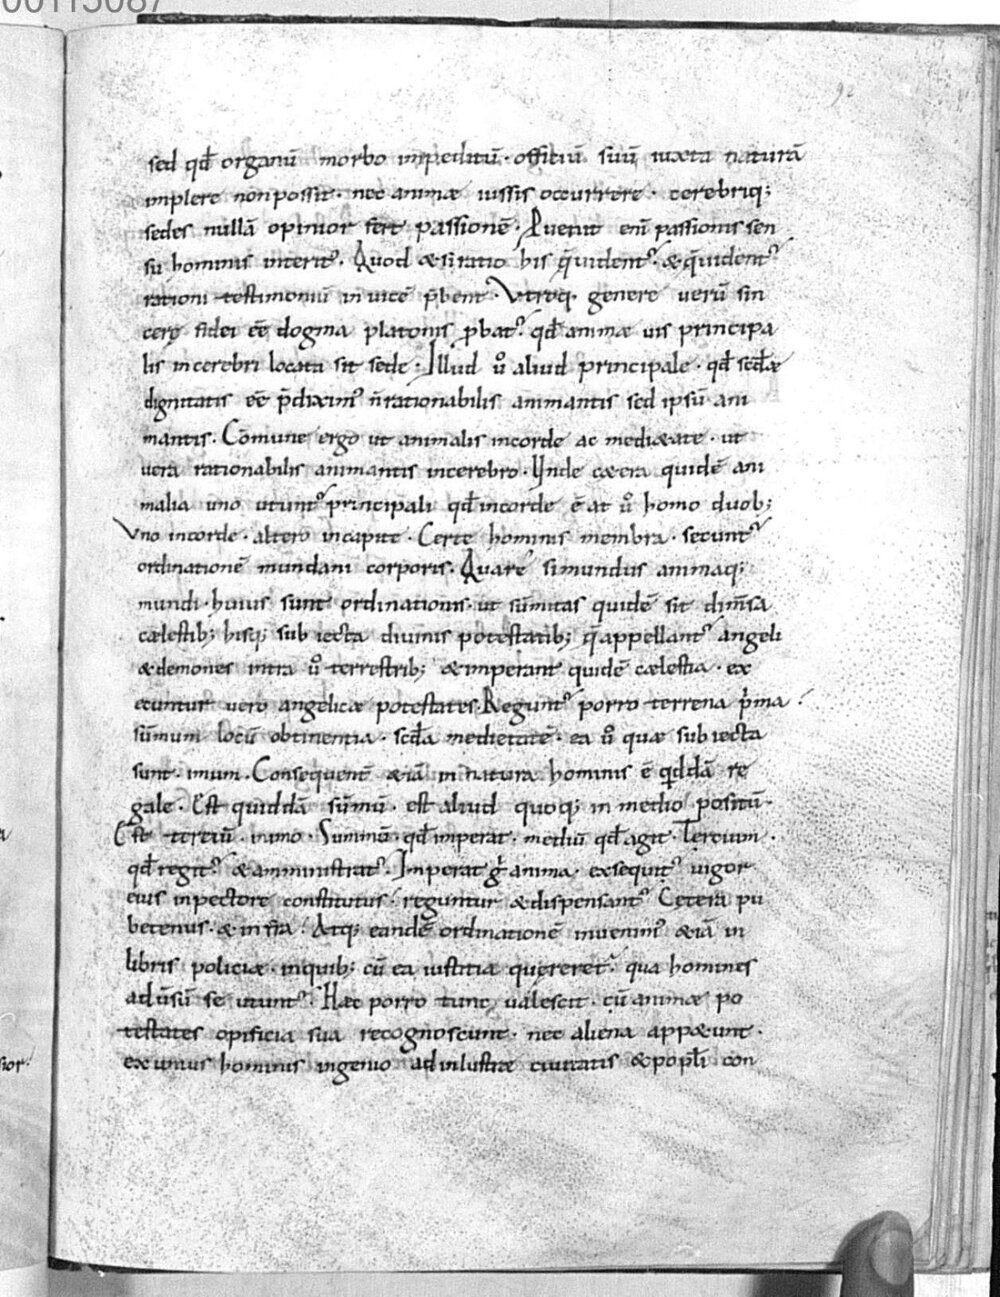 00115087
92
sed qđ organū morbo impeditū · offitiū suū iuxta naturā
implere non possit · nec animæ iussis occurrere · cerebriq;
sedes nullā opinior fert passionē · Ꝓuenit eni passionis sen
su hominis interit᷒ · Quod & si ratio his q̄uident᷒ · & q̄uident᷒
rationi testimoniū in uicē p̄bent᷒ · Vtroq, genere uerū sin
cerę fidei eē dogma platonis ꝓbat᷒ · qđ animæ uis principa
lis in cerebri locata sit sede · Illud ū aliud principale · qđ scđæ
dignitatis eē p̄dixim᷒ n̄ rationabilis animantis sed ipsū ani
mantis · Comune ergo ut animalis in corde ac medi&ate · ut
uera rationabilis animantis in cerebro · Unde c&era quidē ani
malia uno utunt᷒ principali qđ in corde ē at ū homo duob;
Vno in corde · altero in capite · Certe hominis membra · secunt᷒
ordinationē mundani corporis · Quare si mundus animaq;
mundi · huius sunt ordinationis · ut sūmitas quidē sit dim̄sa
cælestib; hisq; subiecta diuinis potestatib; q̄ appellant᷒ angeli
& demones intra ū terrestrib; & imperant quidē cælestia · ex
ecuntur uero angelicæ potestates · Regunt᷒ porro terrena p̍ma ·
sūmum locū obtinentia · scđa medietatē · ea ū quæ subiecta
sunt · imum · Consequent̄ & iā in natura hominis ē qddā re
gale · Est quiddā sūmū · est aliud quoq; in medio positū ·
Est tertiū · in imo · Summū · qđ imperat · mediū qđ agit · Tercium ·
qđ regit᷒ · & amministrat᷒ · Imperat g̍ anima · exsequit᷒ uigor
eius in pectore constitutus · reguntur & dispensant᷒ Cetera pu
betenus · & infra · Atq; eandē ordinationē inuenim᷒ & iā in
libris policiæ · in quib; cū ea iustitia quęreret᷒ · qua homines
ad ūsū se utunt᷒ · Hæc porro tunc ualescit · cū animæ po
testates opificia sua recognoscunt · nec aliena app&unt ·
ex unius hominis ingenio ad inlustræ ciuitatis & pop̄li con